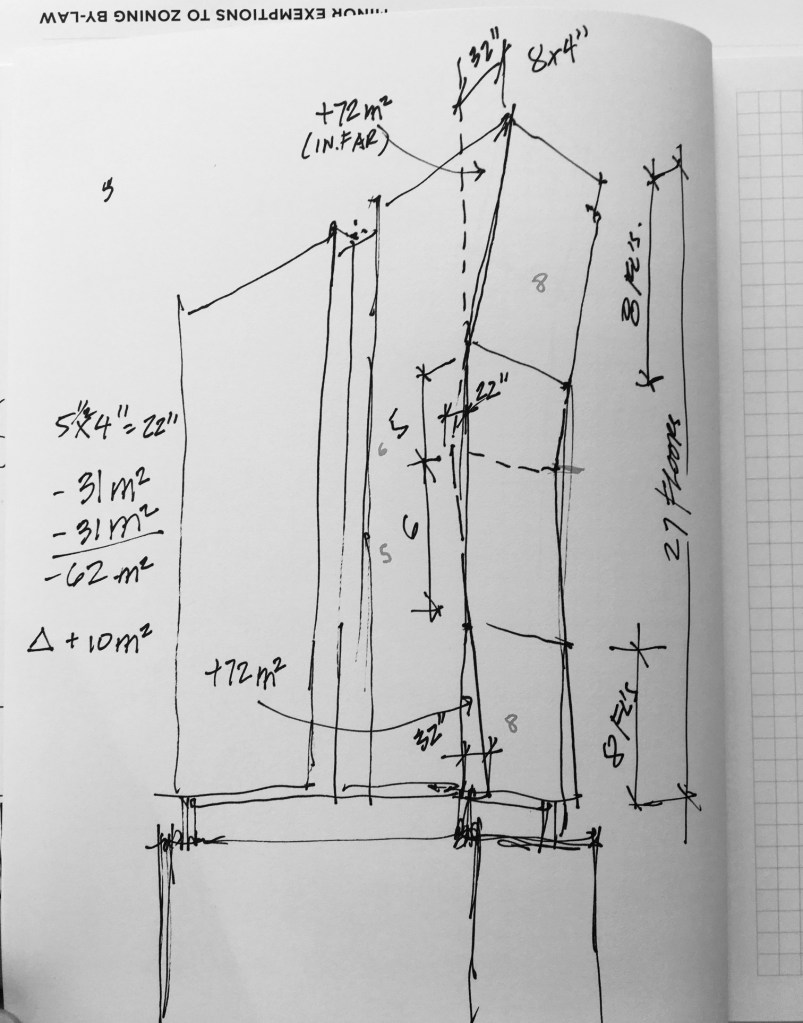 MINOR EXEMPTIONS TO ZONING BY-LAW
32"
8x4"
+72 m²
(IN. FAR)
8
8 FL'S.
22"
5
5 1/2 x 4" = 22"
6
- 31 m²
- 31 m²
- 62 m²
6
5
27 FLOORS
Δ + 10 m²
+72 m²
32"
8
8 FL'S